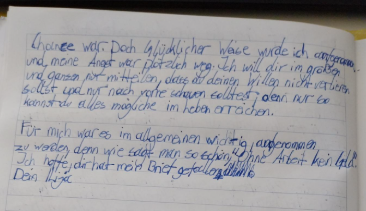 Chance war. Doch Glücklicher Weise wurde ich angenommen,
und meine Angst war plötzlich weg. Ich will dir im großen
und ganzen nur mitteilen, dass du deinen Willen nicht verlieren
sollst, und nur nach vorne schauen solltest, denn nur so
kannst du alles mögliche im Leben erreichen.
Für mich war es im allgemeinen wichtig, angenommen
zu werden, denn wie sagt man so schön, "Ohne Arbeit kein Geld."
Ich hoffe, dir hat mein Brief gefallen
Dein